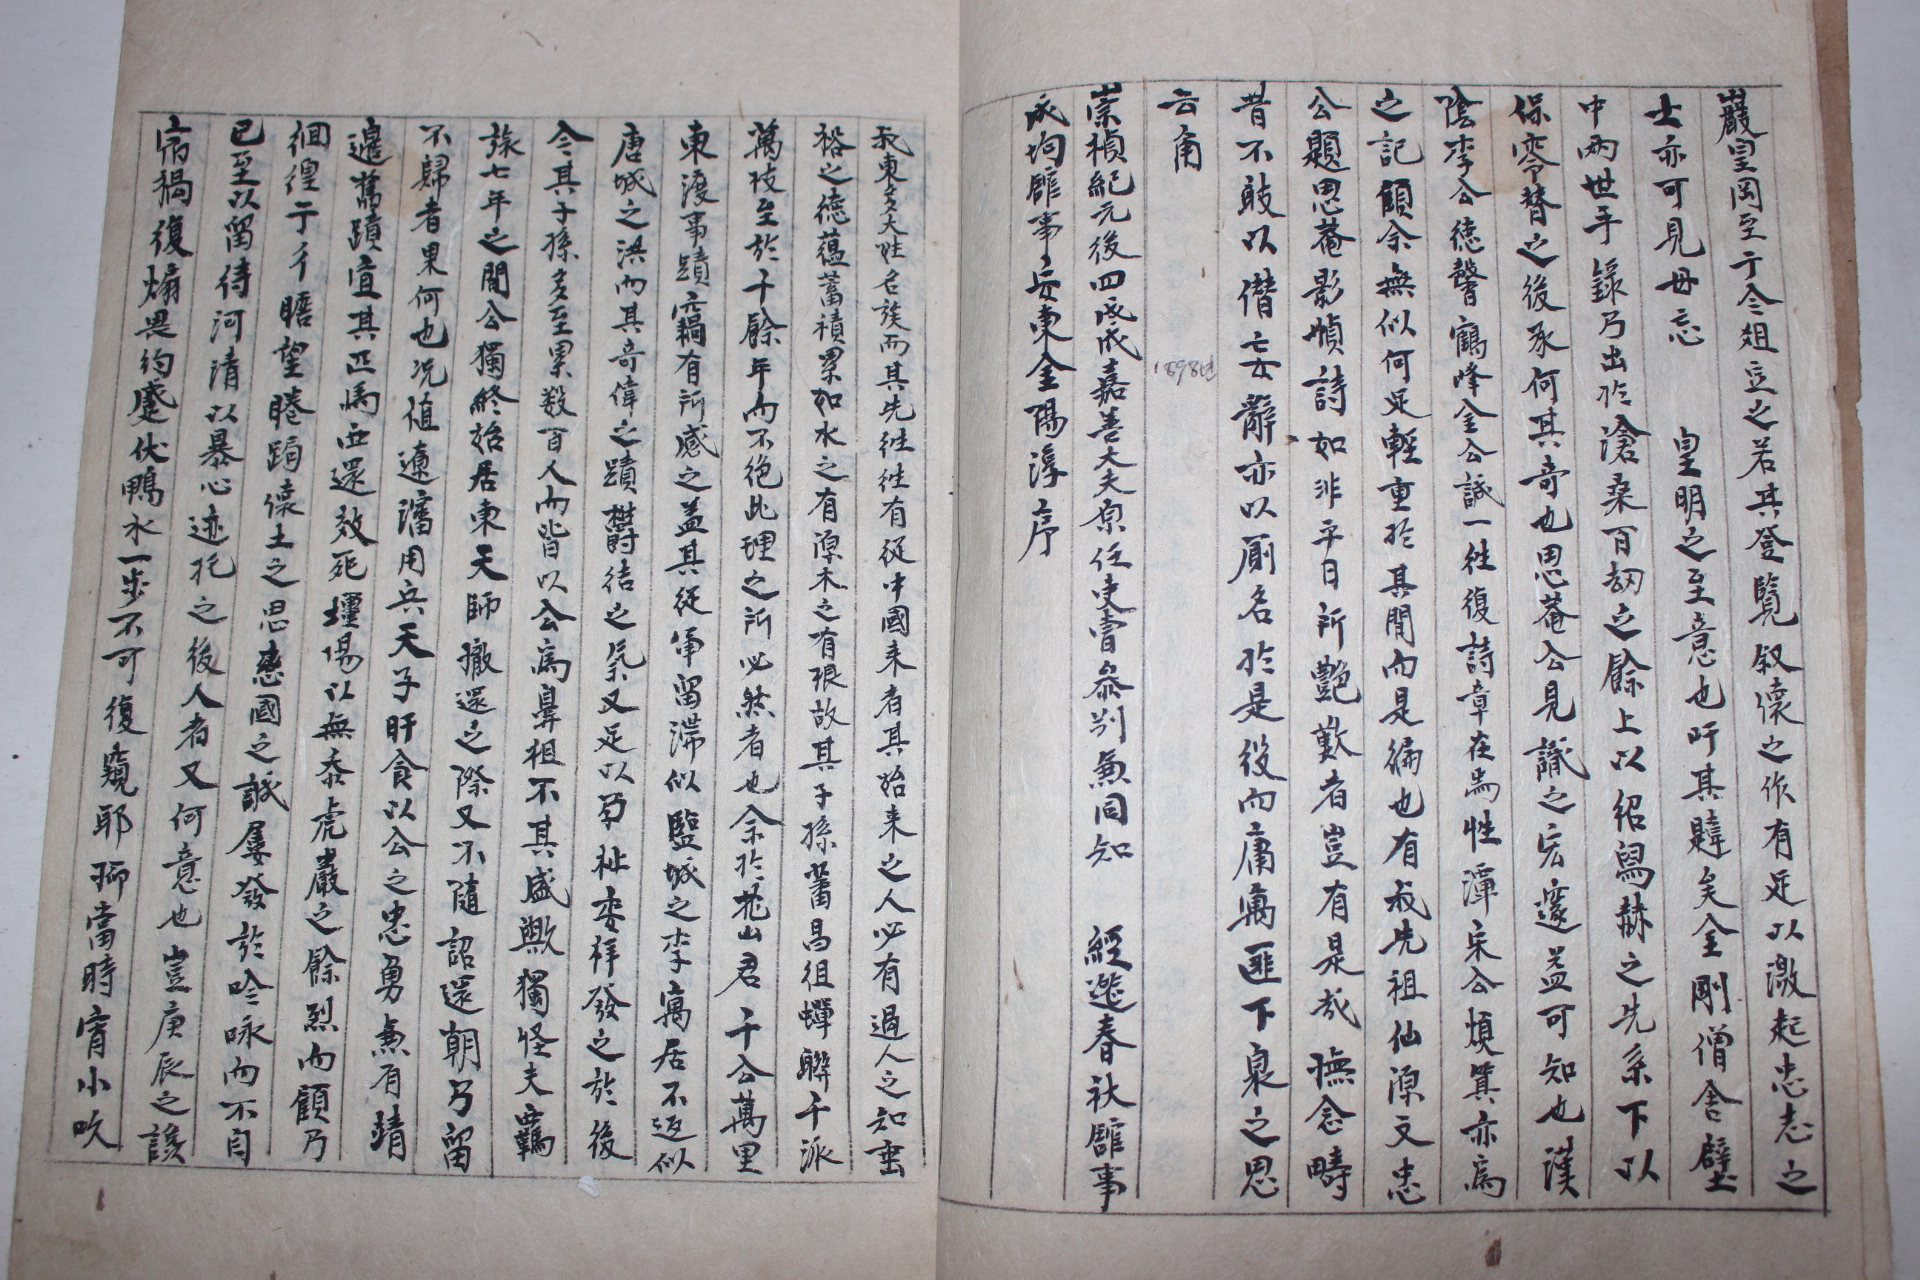 巖皇岡至于今俎豆之若其登覽叙懷之作有足以激起忠志之
士亦可見毋忘 皇明之至意也吁其韙矣金剛僧舍壁
中兩世手錄乃出於滄桑百劫之餘上以紹舄赫之先系下以
保零替之後承何其奇也思菴公見識之宏邃益可知也漢
陰李公德馨鶴峰金公誠一往復詩章在焉性潭宋公煥箕亦爲
之記顧余無似何足輕重於其間而是編也有我先祖仙源文忠
公題思菴影幀詩如非平日所艶歎者豈有是哉撫念疇
昔不敢以僭妄辭亦以厠名於是役而庸寓匪下泉之思
云爾
1898년
崇禎紀元後四戊戌嘉善大夫原任吏曹參判兼同知 經筵春秋館事
成均館事安東金陽淳序
我東多大姓名族而其先徃徃有從中國来者其始来之人必有過人之知垂
裕之德蘊蓄積累如水之有源木之有根故其子孫蕃昌徂蟬聯千派
萬枝至於千餘年而不絶此理之所必然者也余於花山君 千公萬里
東渡事蹟竊有所感之盖其從軍留滯似監城之李寓居不返似
唐城之洪而其奇偉之蹟欝結之氣又足以孕祉委祥發之於後
今其子孫多至累数百人而皆以公爲鼻祖不其盛歟獨怪夫羈
旅七年之間公獨終始居東天師撤還之際又不隨 詔還朝乃留
不歸者果何也况値遼瀋用兵天子旰食以公之忠勇兼有靖
邊舊蹟宜其匹馬西還效死壃場以無忝虎巖之餘烈而顧乃
徊徨于彳瞻望睠跼懷土之思戀國之誠屢發於吟咏而不自
已至以留待河清以暴心迹托之後人者又何意也豈庚辰之誅
宿禍復煽畏約蹙伏鴨水一步不可復窺耶抑當時宵小吹